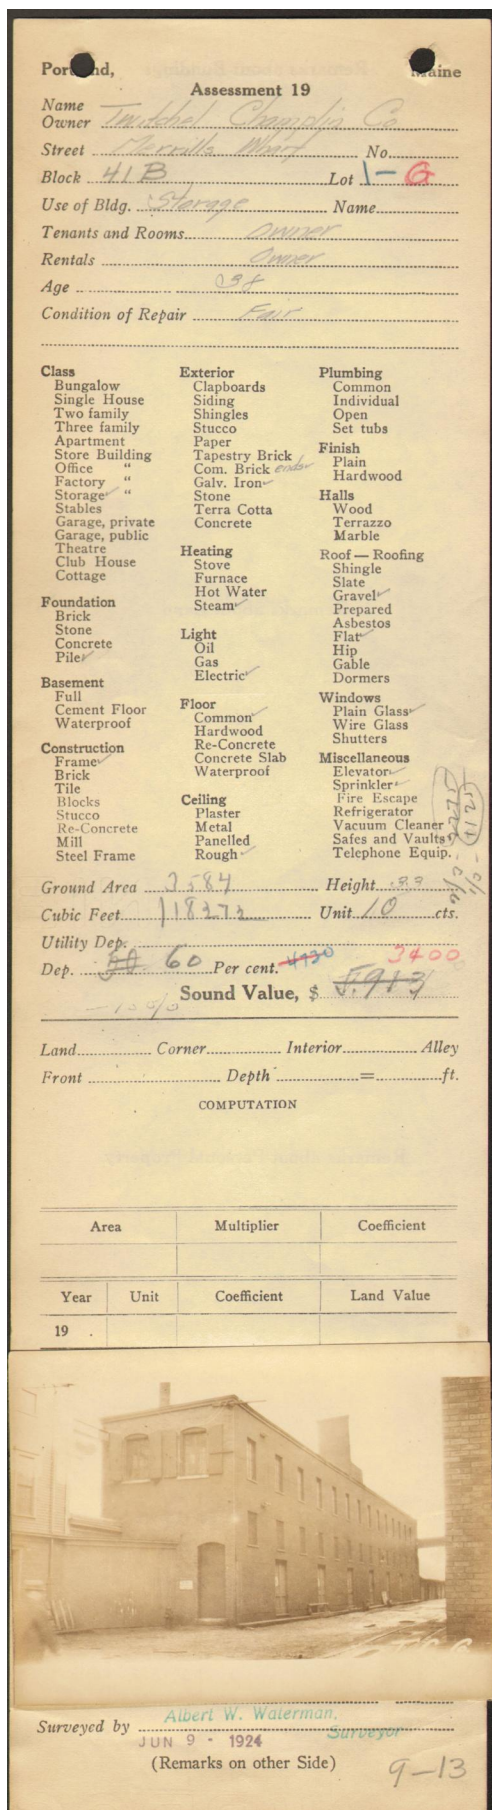 Portland, Maine
Assessment 19
Name
Owner Twitchel Champlin Co
Street Merrills Wharf No.
Block 41B Lot 1-G
Use of Bldg. Storage Name
Tenants and Rooms Owner
Rentals Owner
Age 38
Condition of Repair Fair
Class
Bungalow
Single House
Two family
Three family
Apartment
Store Building
Office "
Factory "
Storage ✓ "
Stables
Garage, private
Garage, public
Theatre
Club House
Cottage
Foundation
Brick
Stone
Concrete
Pile ✓
Basement
Full
Cement Floor
Waterproof
Construction
Frame ✓
Brick
Tile
Blocks
Stucco
Re-Concrete
Mill
Steel Frame
Exterior
Clapboards
Siding
Shingles
Stucco
Paper
Tapestry Brick
Com. Brick ends ✓
Galv. Iron ✓
Stone
Terra Cotta
Concrete
Heating
Stove
Furnace
Hot Water
Steam ✓
Light
Oil
Gas
Electric ✓
Floor
Common ✓
Hardwood
Re-Concrete
Concrete Slab
Waterproof
Ceiling
Plaster
Metal
Panelled
Rough ✓
Plumbing
Common
Individual
Open
Set tubs
Finish
Plain
Hardwood
Halls
Wood
Terrazzo
Marble
Roof — Roofing
Shingle
Slate
Gravel ✓
Prepared
Asbestos
Flat ✓
Hip
Gable
Dormers
Windows
Plain Glass ✓
Wire Glass
Shutters
Miscellaneous
Elevator ✓
Sprinkler ✓
Fire Escape
Refrigerator
Vacuum Cleaner
Safes and Vaults
Telephone Equip.
Ground Area 3584 Height 33
Cubic Feet 118272 Unit 10 cts.
Utility Dep.
Dep. 50 60 Per cent. 4730 3400
Sound Value, $ 5,913
Land Corner Interior Alley
Front Depth = ft.
COMPUTATION
Area Multiplier Coefficient
Year Unit Coefficient Land Value
19
Surveyed by Albert W. Waterman, Surveyor
JUN 9 - 1924
(Remarks on other Side)
9-13